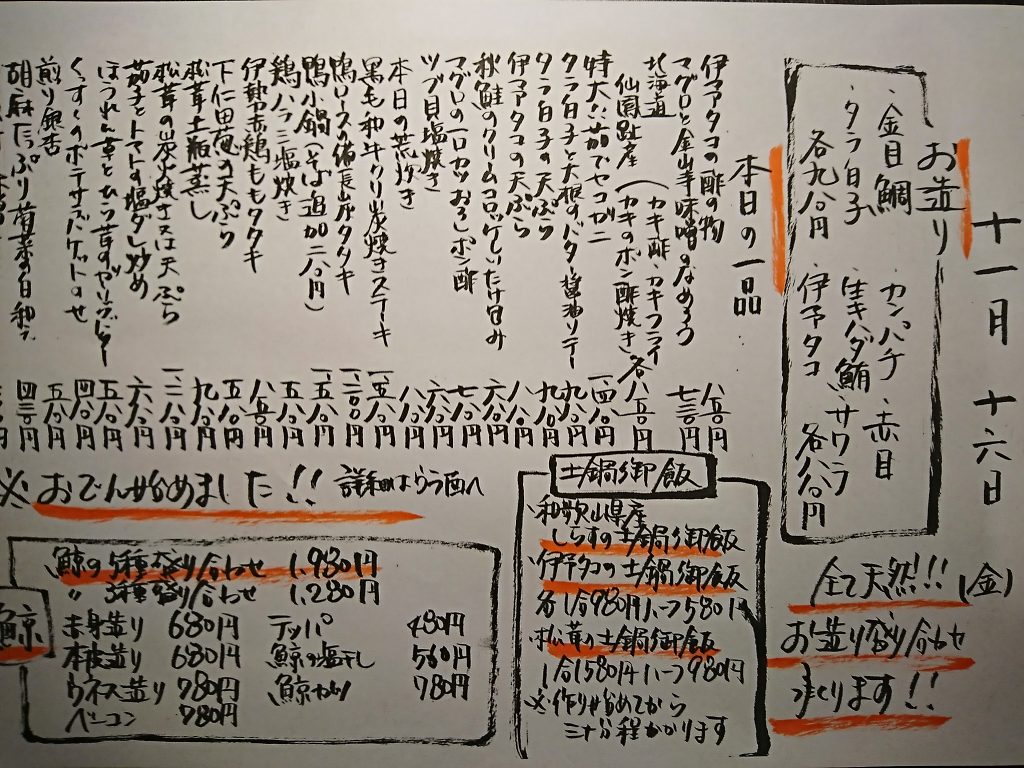 十一月 十六日
(金)
お造り
・金目鯛 カンパチ・赤目
・タラ白子 生キハダ鮪・サワラ
各九八〇円 伊予タコ 各八八〇円
全て天然!!!
お造り盛り合わせ
つくります!!
本日の一品
伊予マダコの酢の物 八五〇円
マグロと金山寺味噌のなめろう 七三〇円
北海道
仙鳳趾産 (カキ酢・カキフライ
カキのポン酢焼き 各八五〇円
特大!!茹でセコガニ 一、四八〇円
タラ白子と大根のバター醤油ソテー 九八〇円
タラ白子の天ぷら 九八〇円
伊予マダコの天ぷら 八八〇円
秋鮭のクリームコロッケしいたけ包み 六八〇円
マグロの一口カツおろしポン酢 七八〇円
ツブ貝塩焼き 六八〇円
本日の荒炊き 八八〇円
黒毛和牛クリ炭焼きステーキ 一、五八〇円
鴨ロースの備長炭タタキ 一、二〇〇円
鴨小鍋(そば追加二八〇円) 一、五八〇円
鶏ハツ三塩焼き 五八〇円
伊勢赤鶏ももタタキ 八五〇円
下仁田葱の天ぷら 五八〇円
松茸土瓶蒸し 九八〇円
松茸の炭火焼き又は天ぷら 一、二八〇円
茄子とトマトの塩ダレ炒め 六八〇円
ほうれん草とひら茸のガーリックバター 五八〇円
くんすくのポテサラバケットのせ 四八〇円
煎り銀杏 五八〇円
胡麻たっぷり菊菜の白和え 四三〇円
※おでん始めました!! 詳細はうら面へ
土鍋御飯
・和歌山県産
しらすの土鍋御飯
・伊予タコの土鍋御飯
各1合980円 ハーフ580円
・松茸の土鍋御飯
1合1580円 ハーフ980円
※作り始めてから
三十分程かかります
鯨
・鯨の5種盛り合わせ 1,980円
〃 3種盛り合わせ 1,280円
赤身造り 680円 テッパ 480円
本皮造り 680円 鯨の塩干し 580円
ウネス造り 780円 鯨カツ 780円
ベーコン 780円